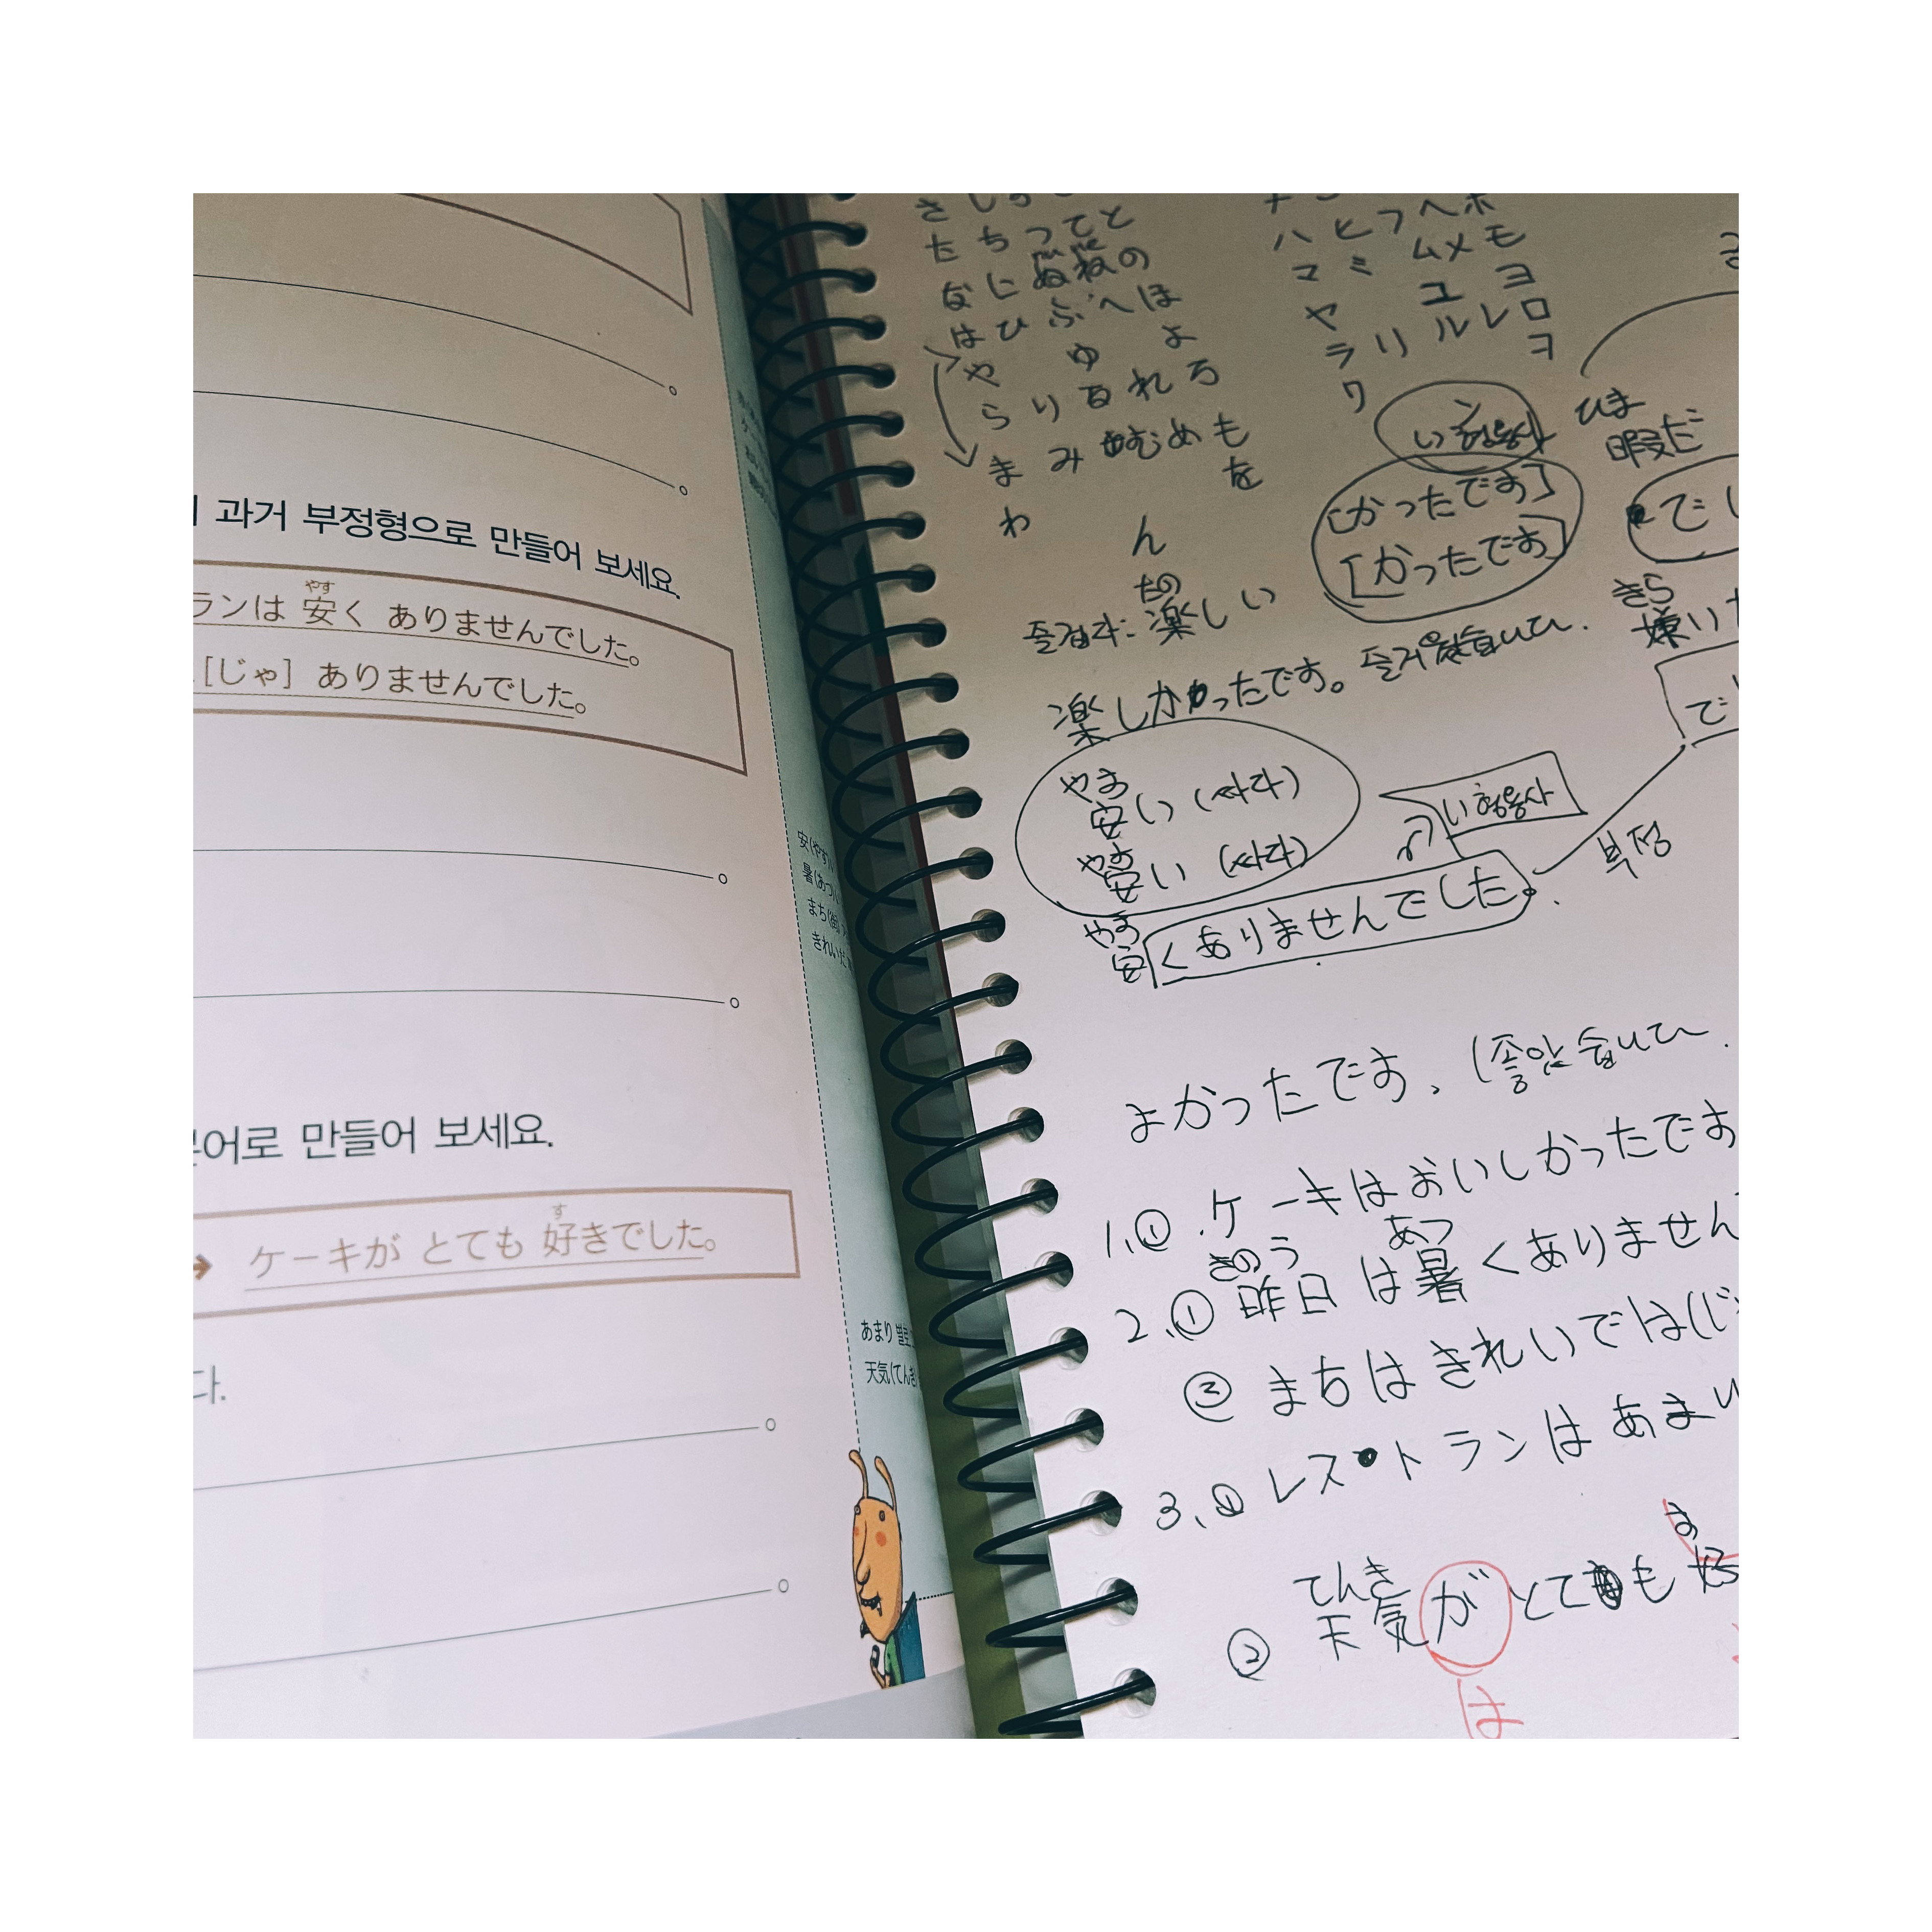 과거 부정형으로 만들어 보세요.
やす
ランは 安く ありませんでした。
[じゃ] ありませんでした。
만들어 보세요.
す
ケーキが とても 好きでした。
다.
安(やす)
暑(あつ
まち(街)
きれいだ
あまり 별로
天気(てんき
た ち つ て と
な に ぬ ね の
は ひ ふ へ ほ
や ゆ よ
ら り る れ ろ
ま み む め も
わ を
ん
ハ ヒ フ ヘ ホ
マ ミ ム メ モ
ヤ ユ ヨ
ラ リ ル レ ロ
ワ ヲ
ン
い 형용사
[かったです]
[かったです]
ひま
暇だ
きら
嫌い
たの
즐겁다: 楽しい
楽しかったです。 즐거웠습니다.
やす
安い (싸다)
やす
安い (싸다)
い형용사
부정
やす
安くありませんでした.
よかったです. (좋았습니다.
1. ① ケーキはおいしかったです
きのう あつ
2. ① 昨日は暑くありません
② まちはきれいでは(じ
3. ① レストランはあまり
てんき す
② 天気がとても好
は